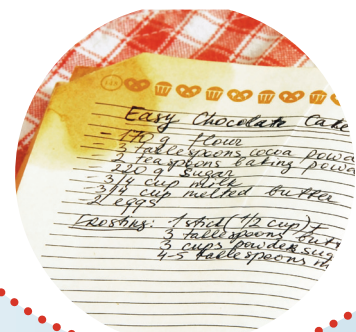 Easy Chocolate Cake
- 170 g flour
- 3 tablespoons cocoa powd
- 2 teaspoons baking powd
- 220 g sugar
- 3/4 cup milk
- 3/4 cup melted butter
- 2 eggs
Frosting: 1 stick (1/2 cup)
3 tablespoons
3 cups powder sug
4-5 tablespoons m